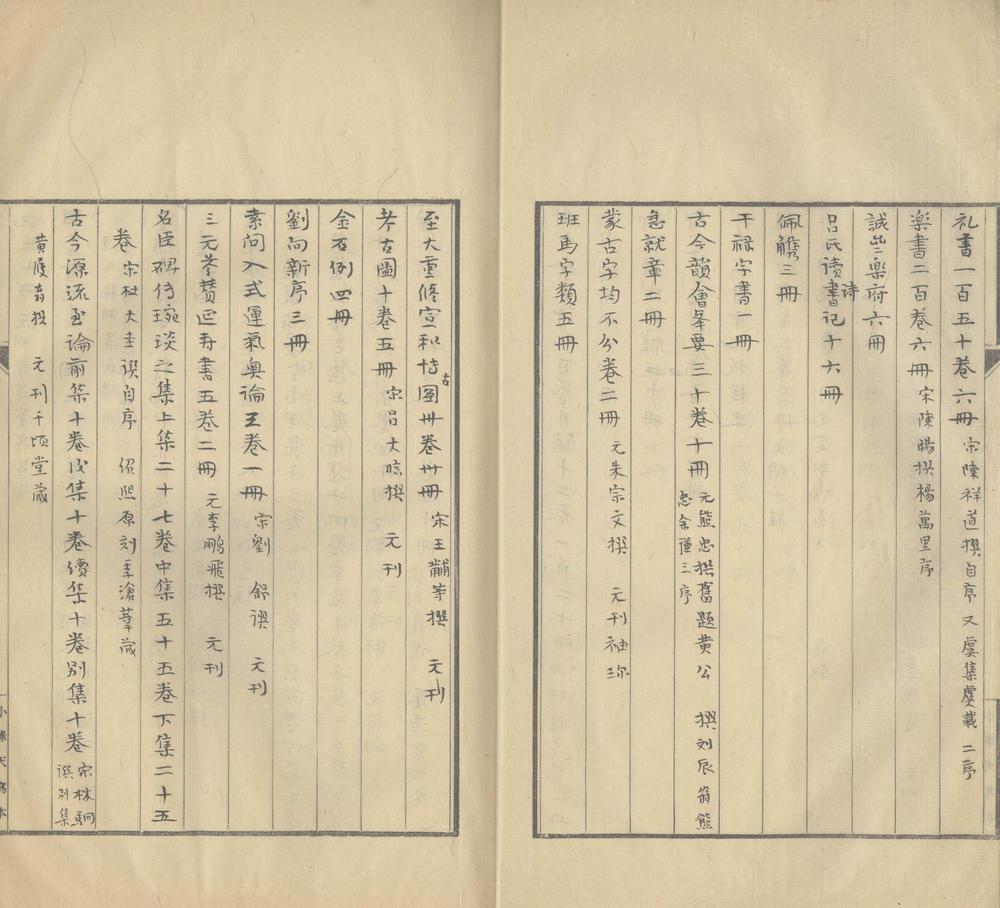 礼書一百五十卷六冊 宋陳祥道撰自序又虞集虞載二序
楽書二百卷六冊 宋陳暘撰楊萬里序
誠斎楽府六冊
呂氏讀詩書记十六冊
佩觿三冊
干禄字書一冊
古今韻會举要三十卷十冊 元熊忠撰舊题黄公 撰刘辰翁熊
忠余谨三序
急就章二冊
蒙古字均不分卷二冊 元朱宗文撰 元刊袖珎
班馬字類五冊
至大重修宣和博古图卅卷卅冊 宋王黼等撰 元刊
考古圖十卷五冊 宋吕大临撰 元刊
金石例四冊
劉向新序三冊
素问入式運氣奥論三卷一冊 宋劉 舒撰 元刊
三元参赞延寿書五卷二冊 元李鹏飛撰 元刊
名臣碑传琬琰之集上集二十七卷中集五十五卷下集二十五
卷 宋杜大圭撰自序 绍熙原刻季滄葦蔵
古今源流至論前集十卷后集十卷續集十卷别集十卷 宋林駉
撰别集
黄履翁撰 元刊千顷堂蔵
小綠天寫本